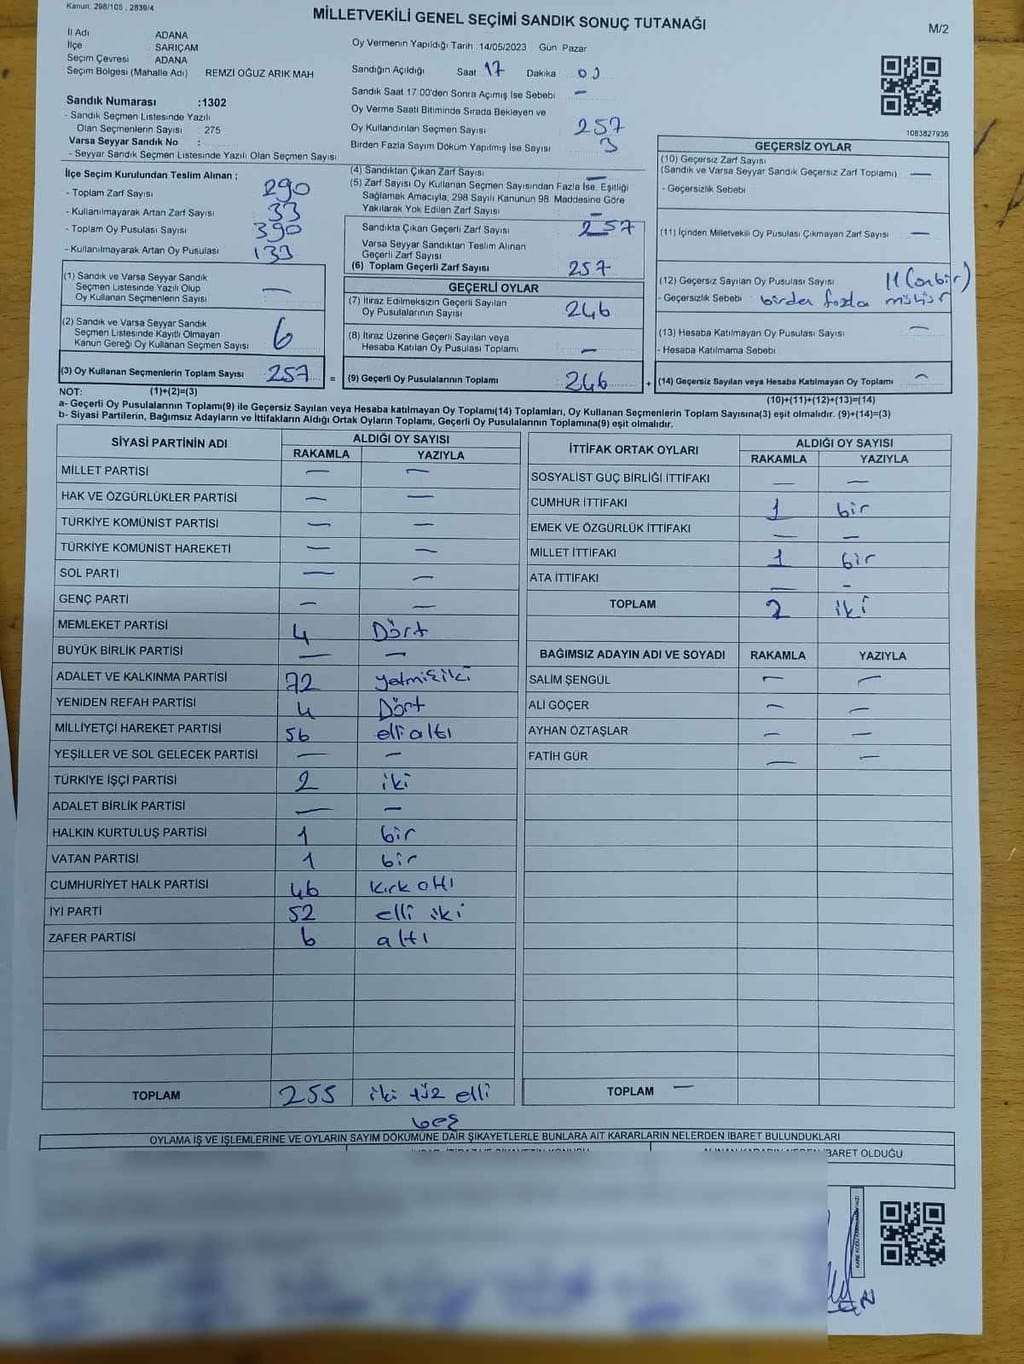 Kanun: 298/105 , 2839/4
MİLLETVEKİLİ GENEL SEÇİMİ SANDIK SONUÇ TUTANAĞI
M/2
İl Adı ADANA
İlçe SARIÇAM
Seçim Çevresi ADANA
Seçim Bölgesi (Mahalle Adı) REMZİ OĞUZ ARIK MAH
Sandık Numarası :1302
- Sandık Seçmen Listesinde Yazılı
Olan Seçmenlerin Sayısı : 275
Varsa Seyyar Sandık No :
- Seyyar Sandık Seçmen Listesinde Yazılı Olan Seçmen Sayısı
Oy Vermenin Yapıldığı Tarih 14/05/2023 Gün Pazar
Sandığın Açıldığı Saat 17 Dakika 00
Sandık Saat 17:00'den Sonra Açımış İse Sebebi —
Oy Verme Saati Bitiminde Sırada Bekleyen ve
Oy Kullandırılan Seçmen Sayısı 257
Birden Fazla Sayım Döküm Yapılmış İse Sayısı 3
1083827936
İlçe Seçim Kurulundan Teslim Alınan :
- Toplam Zarf Sayısı 290
- Kullanılmayarak Artan Zarf Sayısı 33
- Toplam Oy Pusulası Sayısı 390
- Kullanılmayarak Artan Oy Pusulası 133
(1) Sandık ve Varsa Seyyar Sandık
Seçmen Listesinde Yazılı Olup
Oy Kullanan Seçmenlerin Sayısı —
(2) Sandık ve Varsa Seyyar Sandık
Seçmen Listesinde Kayıtlı Olmayan
Kanun Gereği Oy Kullanan Seçmen Sayısı 6
(3) Oy Kullanan Seçmenlerin Toplam Sayısı 257 =
(4) Sandıktan Çıkan Zarf Sayısı —
(5) Zarf Sayısı Oy Kullanan Seçmen Sayısından Fazla İse, Eşitliği
Sağlamak Amacıyla, 298 Sayılı Kanunun 98. Maddesine Göre
Yakılarak Yok Edilen Zarf Sayısı —
Sandıkta Çıkan Geçerli Zarf Sayısı 257
Varsa Seyyar Sandıktan Teslim Alınan
Geçerli Zarf Sayısı
(6) Toplam Geçerli Zarf Sayısı 257
GEÇERLİ OYLAR
(7) İtiraz Edilmeksizin Geçerli Sayılan
Oy Pusulalarının Sayısı 246
(8) İtiraz Üzerine Geçerli Sayılan veya
Hesaba Katılan Oy Pusulası Toplamı —
(9) Geçerli Oy Pusulalarının Toplamı 246 +
GEÇERSİZ OYLAR
(10) Geçersiz Zarf Sayısı
(Sandık ve Varsa Seyyar Sandık Geçersiz Zarf Toplamı) —
- Geçersizlik Sebebi
(11) İçinden Milletvekili Oy Pusulası Çıkmayan Zarf Sayısı —
(12) Geçersiz Sayılan Oy Pusulası Sayısı 11 (onbir)
- Geçersizlik Sebebi birden fazla mühür
(13) Hesaba Katılmayan Oy Pusulası Sayısı —
- Hesaba Katılmama Sebebi
(14) Geçersiz Sayılan veya Hesaba Katılmayan Oy Toplamı —
NOT: (1)+(2)=(3)
(10)+(11)+(12)+(13)=(14)
a- Geçerli Oy Pusulalarının Toplamı(9) ile Geçersiz Sayılan veya Hesaba katılmayan Oy Toplamı(14) Toplamları, Oy Kullanan Seçmenlerin Toplam Sayısına(3) eşit olmalıdır. (9)+(14)=(3)
b- Siyasi Partilerin, Bağımsız Adayların ve İttifakların Aldığı Ortak Oyların Toplamı, Geçerli Oy Pusulalarının Toplamına(9) eşit olmalıdır.
SİYASİ PARTİNİN ADI ALDIĞI OY SAYISI
RAKAMLA YAZIYLA
MİLLET PARTİSİ — —
HAK VE ÖZGÜRLÜKLER PARTİSİ — —
TÜRKİYE KOMÜNİST PARTİSİ — —
TÜRKİYE KOMÜNİST HAREKETİ — —
SOL PARTİ — —
GENÇ PARTİ — —
MEMLEKET PARTİSİ 4 Dört
BÜYÜK BİRLİK PARTİSİ — —
ADALET VE KALKINMA PARTİSİ 72 yetmişiki
YENİDEN REFAH PARTİSİ 4 Dört
MİLLİYETÇİ HAREKET PARTİSİ 56 elli altı
YEŞİLLER VE SOL GELECEK PARTİSİ — —
TÜRKİYE İŞÇİ PARTİSİ 2 iki
ADALET BİRLİK PARTİSİ — —
HALKIN KURTULUŞ PARTİSİ 1 bir
VATAN PARTİSİ 1 bir
CUMHURİYET HALK PARTİSİ 46 kırk altı
İYİ PARTİ 52 elli iki
ZAFER PARTİSİ 6 altı
TOPLAM 255 iki yüz elli
beş
İTTİFAK ORTAK OYLARI ALDIĞI OY SAYISI
RAKAMLA YAZIYLA
SOSYALİST GÜÇ BİRLİĞİ İTTİFAKI — —
CUMHUR İTTİFAKI 1 bir
EMEK VE ÖZGÜRLÜK İTTİFAKI — —
MİLLET İTTİFAKI 1 bir
ATA İTTİFAKI — —
TOPLAM 2 iki
BAĞIMSIZ ADAYIN ADI VE SOYADI RAKAMLA YAZIYLA
SALİM ŞENGÜL — —
ALİ GÖÇER — —
AYHAN ÖZTAŞLAR — —
FATİH GÜR — —
TOPLAM —
OYLAMA İŞ VE İŞLEMLERİNE VE OYLARIN SAYIM DÖKÜMÜNE DAİR ŞİKAYETLERLE BUNLARA AİT KARARLARIN NELERDEN İBARET BULUNDUKLARI
BARET OLDUĞU